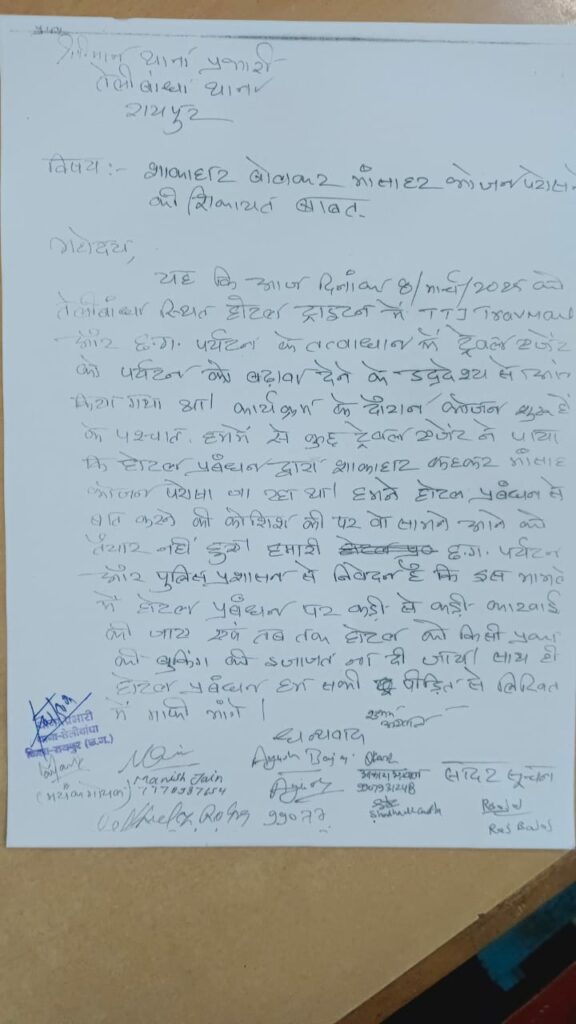 श्रीमान थाना प्रभारी
तेलीबांधा थाना
रायपुर
विषय :- शाकाहार बोलकर मांसाहर भोजन परोसने
की शिकायत बाबत.
महोदय,
यह कि आज दिनांक 8/मार्च/2025 को
तेलीबांधा स्थित होटल ट्राइटन में TTJ Travmart
और छ.ग. पर्यटन के तत्वाधान में ट्रेवल एजेंट
को पर्यटन को बढ़ावा देने के उद्देश्य से
किया गया था। कार्यक्रम के दौरान भोजन शुरू
के पश्चात हममें से कुछ ट्रेवल एजेंट ने पाया
कि होटल प्रबंधन द्वारा शाकाहार कहकर मांसाह
भोजन परोसा जा रहा था। हमने होटल प्रबंधन से
बात करने की कोशिश की पर वो सामने आने को
तैयार नहीं हुए। हमारी छ.ग. पर्यटन
और पुलिस प्रशासन से निवेदन है कि इस मामले
में होटल प्रबंधन पर कड़ी से कड़ी कारवाई
की जाय एवं तब तक होटल को किसी प्रका
की बुकिंग की इजाजत ना दी जाये। साथ ही
होटल प्रबंधन हम सभी पीड़ित से लिखित
में माफी मांगे।
धन्यवाद
थाना प्रभारी
थाना-तेलीबांधा
जिला-रायपुर (छ.ग.)
Manish Jain
Ayush Bajaj
9907931248
99077
Raj Bajaj